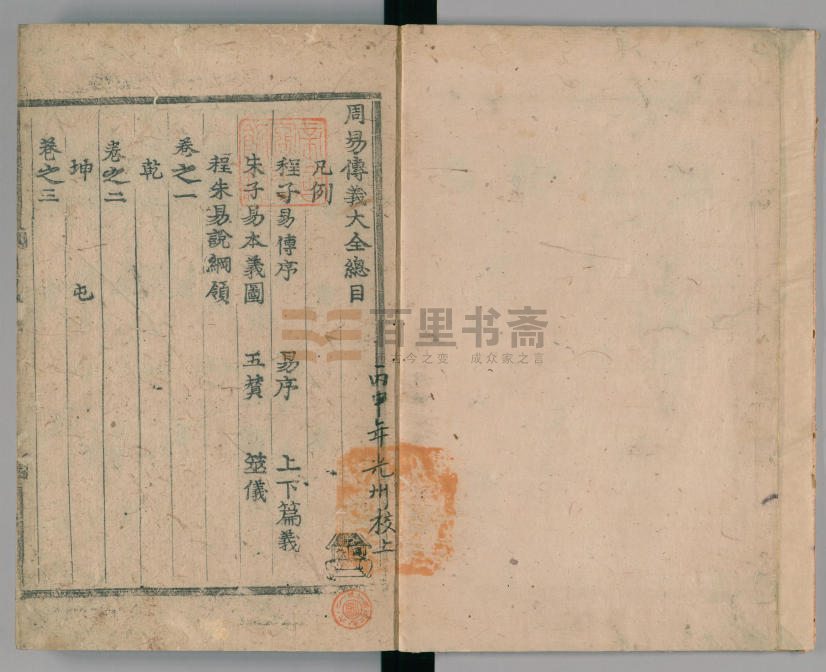 周易傳義大全總目
凡例
程子易傳序 易序 上下篇義
朱子易本義圖 五贊 筮儀
程朱易說綱領
卷之一
乾
卷之二
坤 屯
卷之三
丙申年光州校上
百里书斋
古今之变 成众家之言